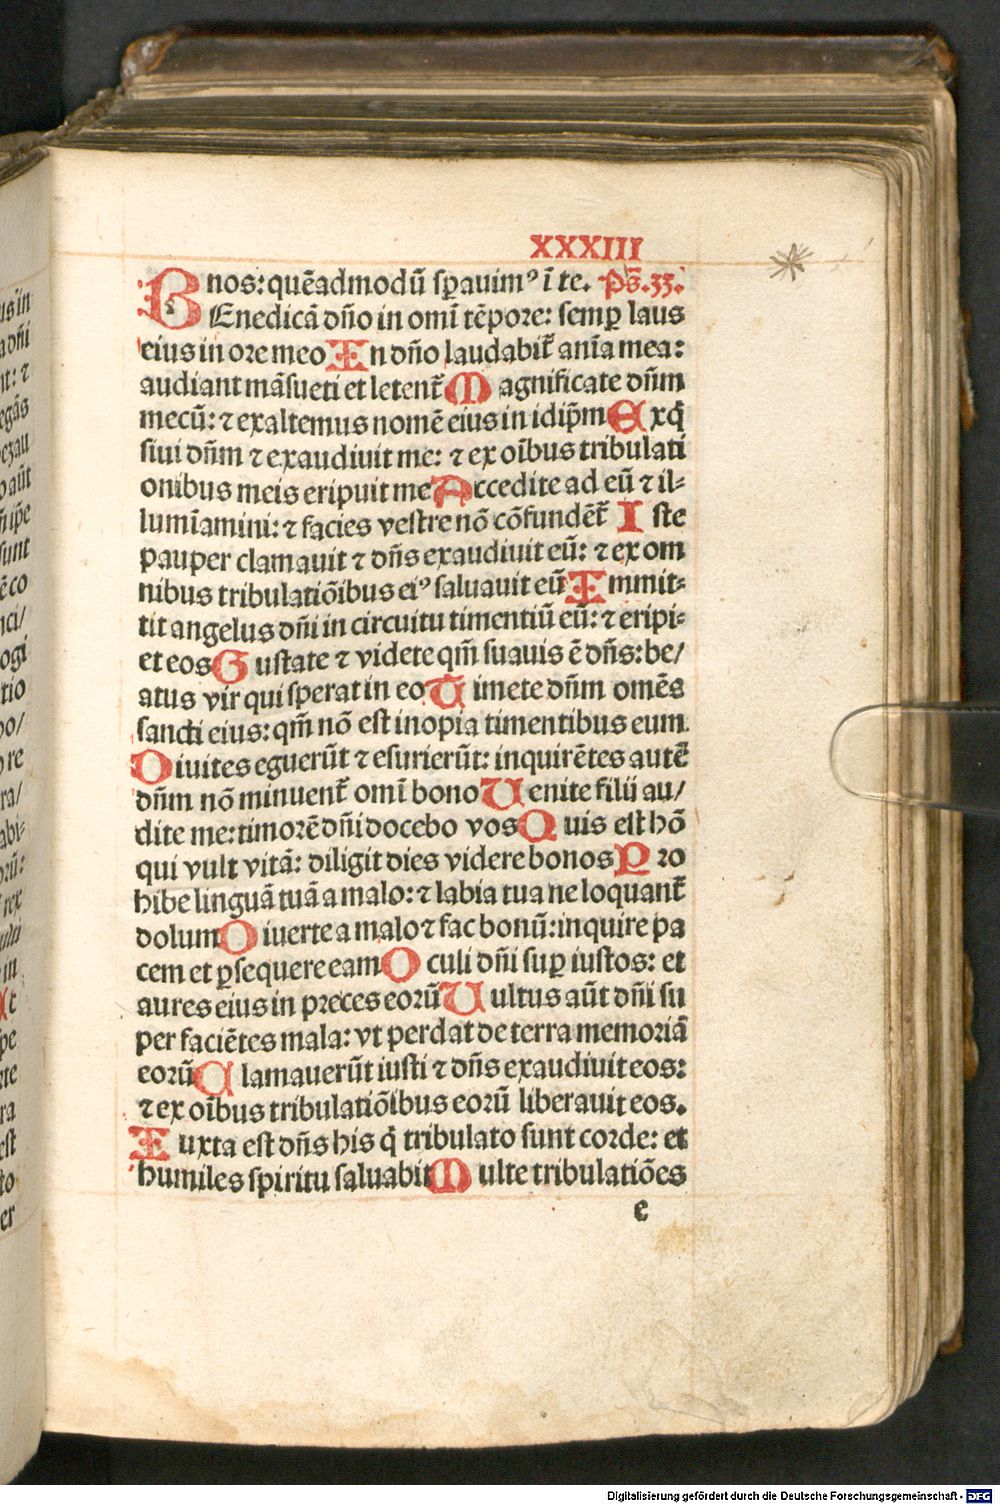 XXXIII
nos: quēadmodū sꝑauimꝰ ī te. Ps̄.33.
BEnedicā dn̄o in omī tēpore: semꝑ laus
eius in ore meo In dn̄o laudabit᷑ anīa mea:
audiant māsueti et letent᷑ Magnificate dn̄m
mecū: ⁊ exaltemus nomē eius in idip̄m Exq̄
siui dn̄m ⁊ exaudiuit me: ⁊ ex oībus tribulati
onibus meis eripuit me Accedite ad eū ⁊ il⸗
lumīamini: ⁊ facies vestre nō cōfundēt᷑ Iste
pauper clamauit ⁊ dn̄s exaudiuit eū: ⁊ ex om
nibus tribulatiōibus eiꝰ saluauit eū Immit⸗
tit angelus dn̄i in circuitu timentiū eū: ⁊ eripi⸗
et eos Gustate ⁊ videte qm̄ suauis ē dn̄s: be/
atus vir qui sperat in eo Timete dn̄m omēs
sancti eius: qm̄ nō est inopia timentibus eum.
Diuites eguerūt ⁊ esurierūt: inquirētes autē
dn̄m nō minuent᷑ omī bono Uenite filii au/
dite me: timorē dn̄i docebo vos Quis est hō
qui vult vitā: diligit dies videre bonos Pro
hibe linguā tuā a malo: ⁊ labia tua ne loquant᷑
dolum Diuerte a malo ⁊ fac bonū: inquire pa
cem et ꝑsequere eam Oculi dn̄i suꝑ iustos: et
aures eius in preces eorū Uultus aūt dn̄i su
per faciētes mala: vt perdat de terra memoriā
eorū Clamauerūt iusti ⁊ dn̄s exaudiuit eos:
⁊ ex oībus tribulatiōibus eorū liberauit eos.
Iuxta est dn̄s his q̄ tribulato sunt corde: et
humiles spiritu saluabit Multe tribulatiōes
e
Digitalisierung gefördert durch die Deutsche Forschungsgemeinschaft - DFG